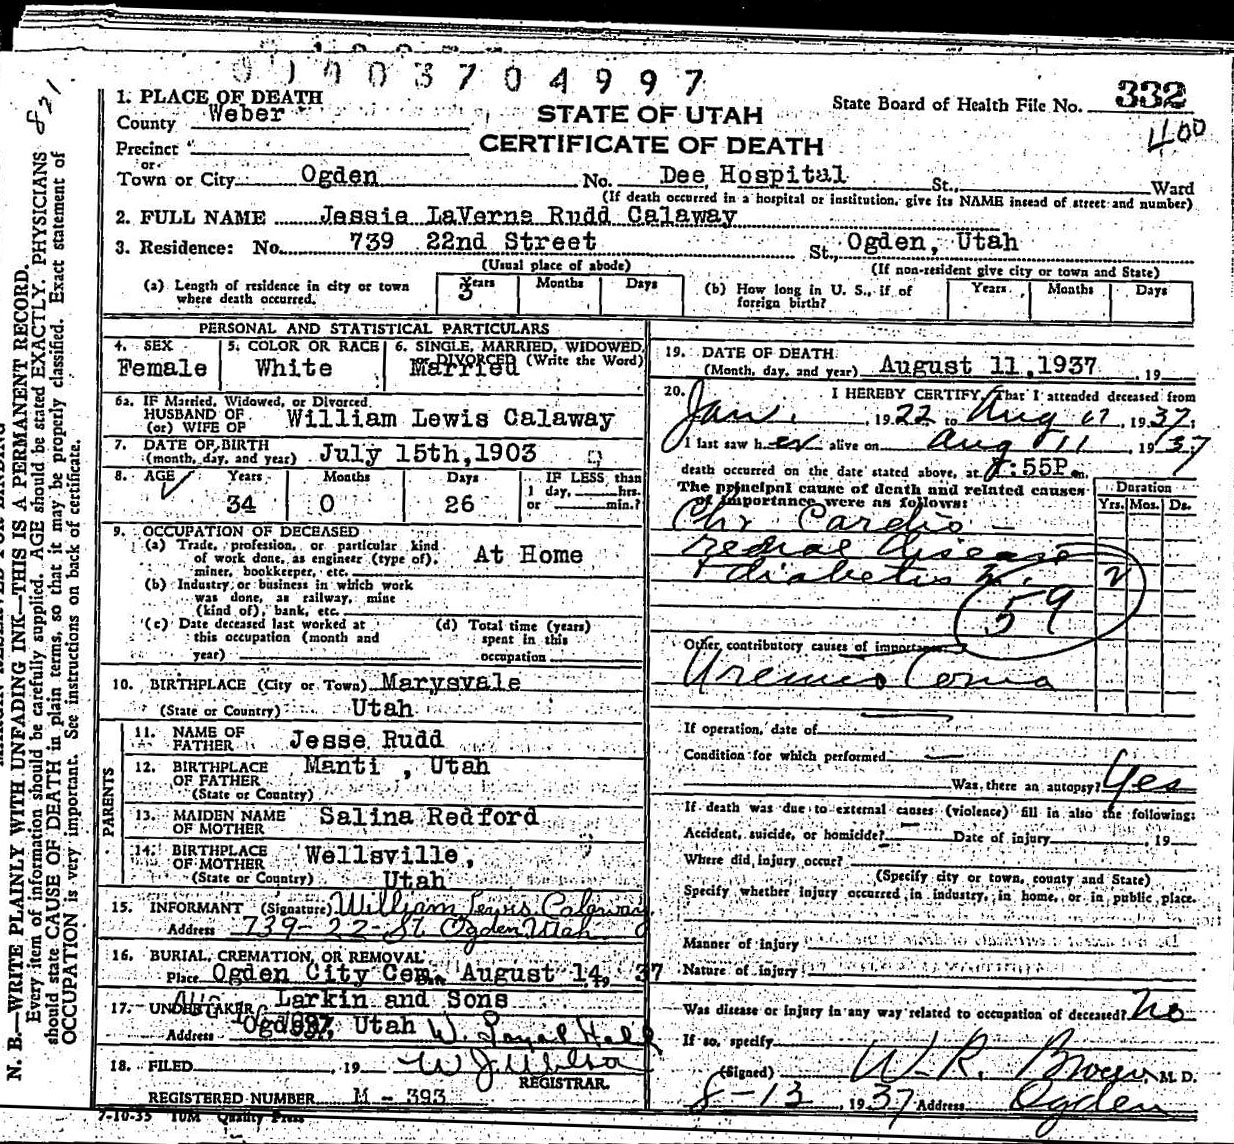 0 1 0 0 3 7 0 4 9 9 7
821
1. PLACE OF DEATH
County Weber
STATE OF UTAH
CERTIFICATE OF DEATH
State Board of Health File No. 332
400
Precinct
or
Town or City Ogden No. Dee Hospital St., Ward
(If death occurred in a hospital or institution, give its NAME insead of street and number)
2. FULL NAME Jessie LaVerne Rudd Calaway
3. Residence: No. 739 22nd Street St., Ogden, Utah
(Usual place of abode) (If non-resident give city or town and State)
(a) Length of residence in city or town where death occurred. 3 Years Months Days
(b) How long in U. S., if of foreign birth? Years Months Days
PERSONAL AND STATISTICAL PARTICULARS
4. SEX Female
5. COLOR OR RACE White
6. SINGLE, MARRIED, WIDOWED, or DIVORCED (Write the Word) Married
6a. IF Married, Widowed, or Divorced
HUSBAND OF
(or) WIFE OF William Lewis Calaway
7. DATE OF BIRTH
(month, day, and year) July 15th, 1903
8. AGE Years Months Days IF LESS than
34 0 26 1 day, hrs. or min.?
9. OCCUPATION OF DECEASED
(a) Trade, profession, or particular kind of work done, as engineer (type of), miner, bookkeeper, etc. At Home
(b) Industry or business in which work was done, as railway, mine (kind of), bank, etc.
(c) Date deceased last worked at this occupation (month and year)
(d) Total time (years) spent in this occupation
10. BIRTHPLACE (City or Town) Marysvale
(State or Country) Utah
PARENTS
11. NAME OF FATHER Jesse Rudd
12. BIRTHPLACE OF FATHER Manti, Utah
(State or Country)
13. MAIDEN NAME OF MOTHER Salina Redford
14. BIRTHPLACE OF MOTHER Wellsville,
(State or Country) Utah
15. INFORMANT (Signature) William Lewis Calaway
Address 739-22-St Ogden Utah
16. BURIAL, CREMATION, OR REMOVAL
Place Ogden City Cem. Date August 14, 37
17. UNDERTAKER Larkin and Sons
Address Ogden, Utah W. Loyal Hall
18. FILED , 19
REGISTRAR.
REGISTERED NUMBER M - 393
7-10-35 10M Quality Press
19. DATE OF DEATH
(Month, day, and year) August 11, 1937, 19
20. I HEREBY CERTIFY, That I attended deceased from
Jan. , 1922 to Aug 11, 1937;
I last saw her alive on Aug 11, 1937
death occurred on the date stated above, at :55P m.
The principal cause of death and related causes of importance were as follows:
Duration
Yrs. Mos. Ds.
Chr Cardio-
renal disease
+ diabetis
59
Other contributory causes of importance:
Uremic Coma
If operation, date of
Condition for which performed
Was there an autopsy? Yes
If death was due to external causes (violence) fill in also the following:
Accident, suicide, or homicide? Date of injury , 19
Where did injury occur?
(Specify city or town, county and State)
Specify whether injury occurred in industry, in home, or in public place.
Manner of injury
Nature of injury
Was disease or injury in any way related to occupation of deceased? No
If so, specify
(Signed) W. R. Brown, M. D.
8-13, 1937 Address Ogden
N. B.—WRITE PLAINLY WITH UNFADING INK—THIS IS A PERMANENT RECORD.
Every item of information should be carefully supplied. AGE should be stated EXACTLY. PHYSICIANS
should state CAUSE OF DEATH in plain terms, so that it may be properly classified. Exact statement of
OCCUPATION is very important. See instructions on back of certificate.